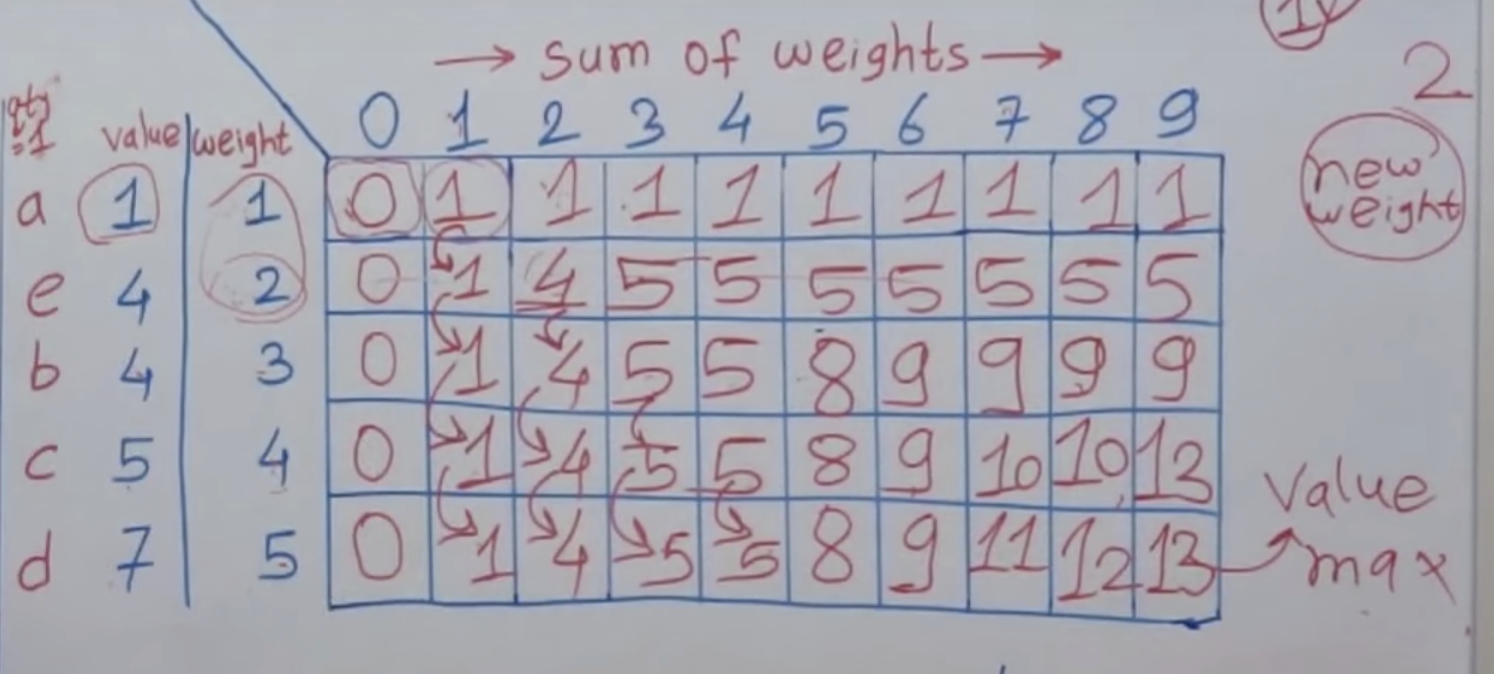 → sum of weights →
2
qty
=1 value weight 0 1 2 3 4 5 6 7 8 9
new
weight
a 1 1 0 1 1 1 1 1 1 1 1 1
e 4 2 0 1 4 5 5 5 5 5 5 5
b 4 3 0 1 4 5 5 8 9 9 9 9
c 5 4 0 1 4 5 5 8 9 10 10 13
d 7 5 0 1 4 5 5 8 9 11 12 13
Value
max